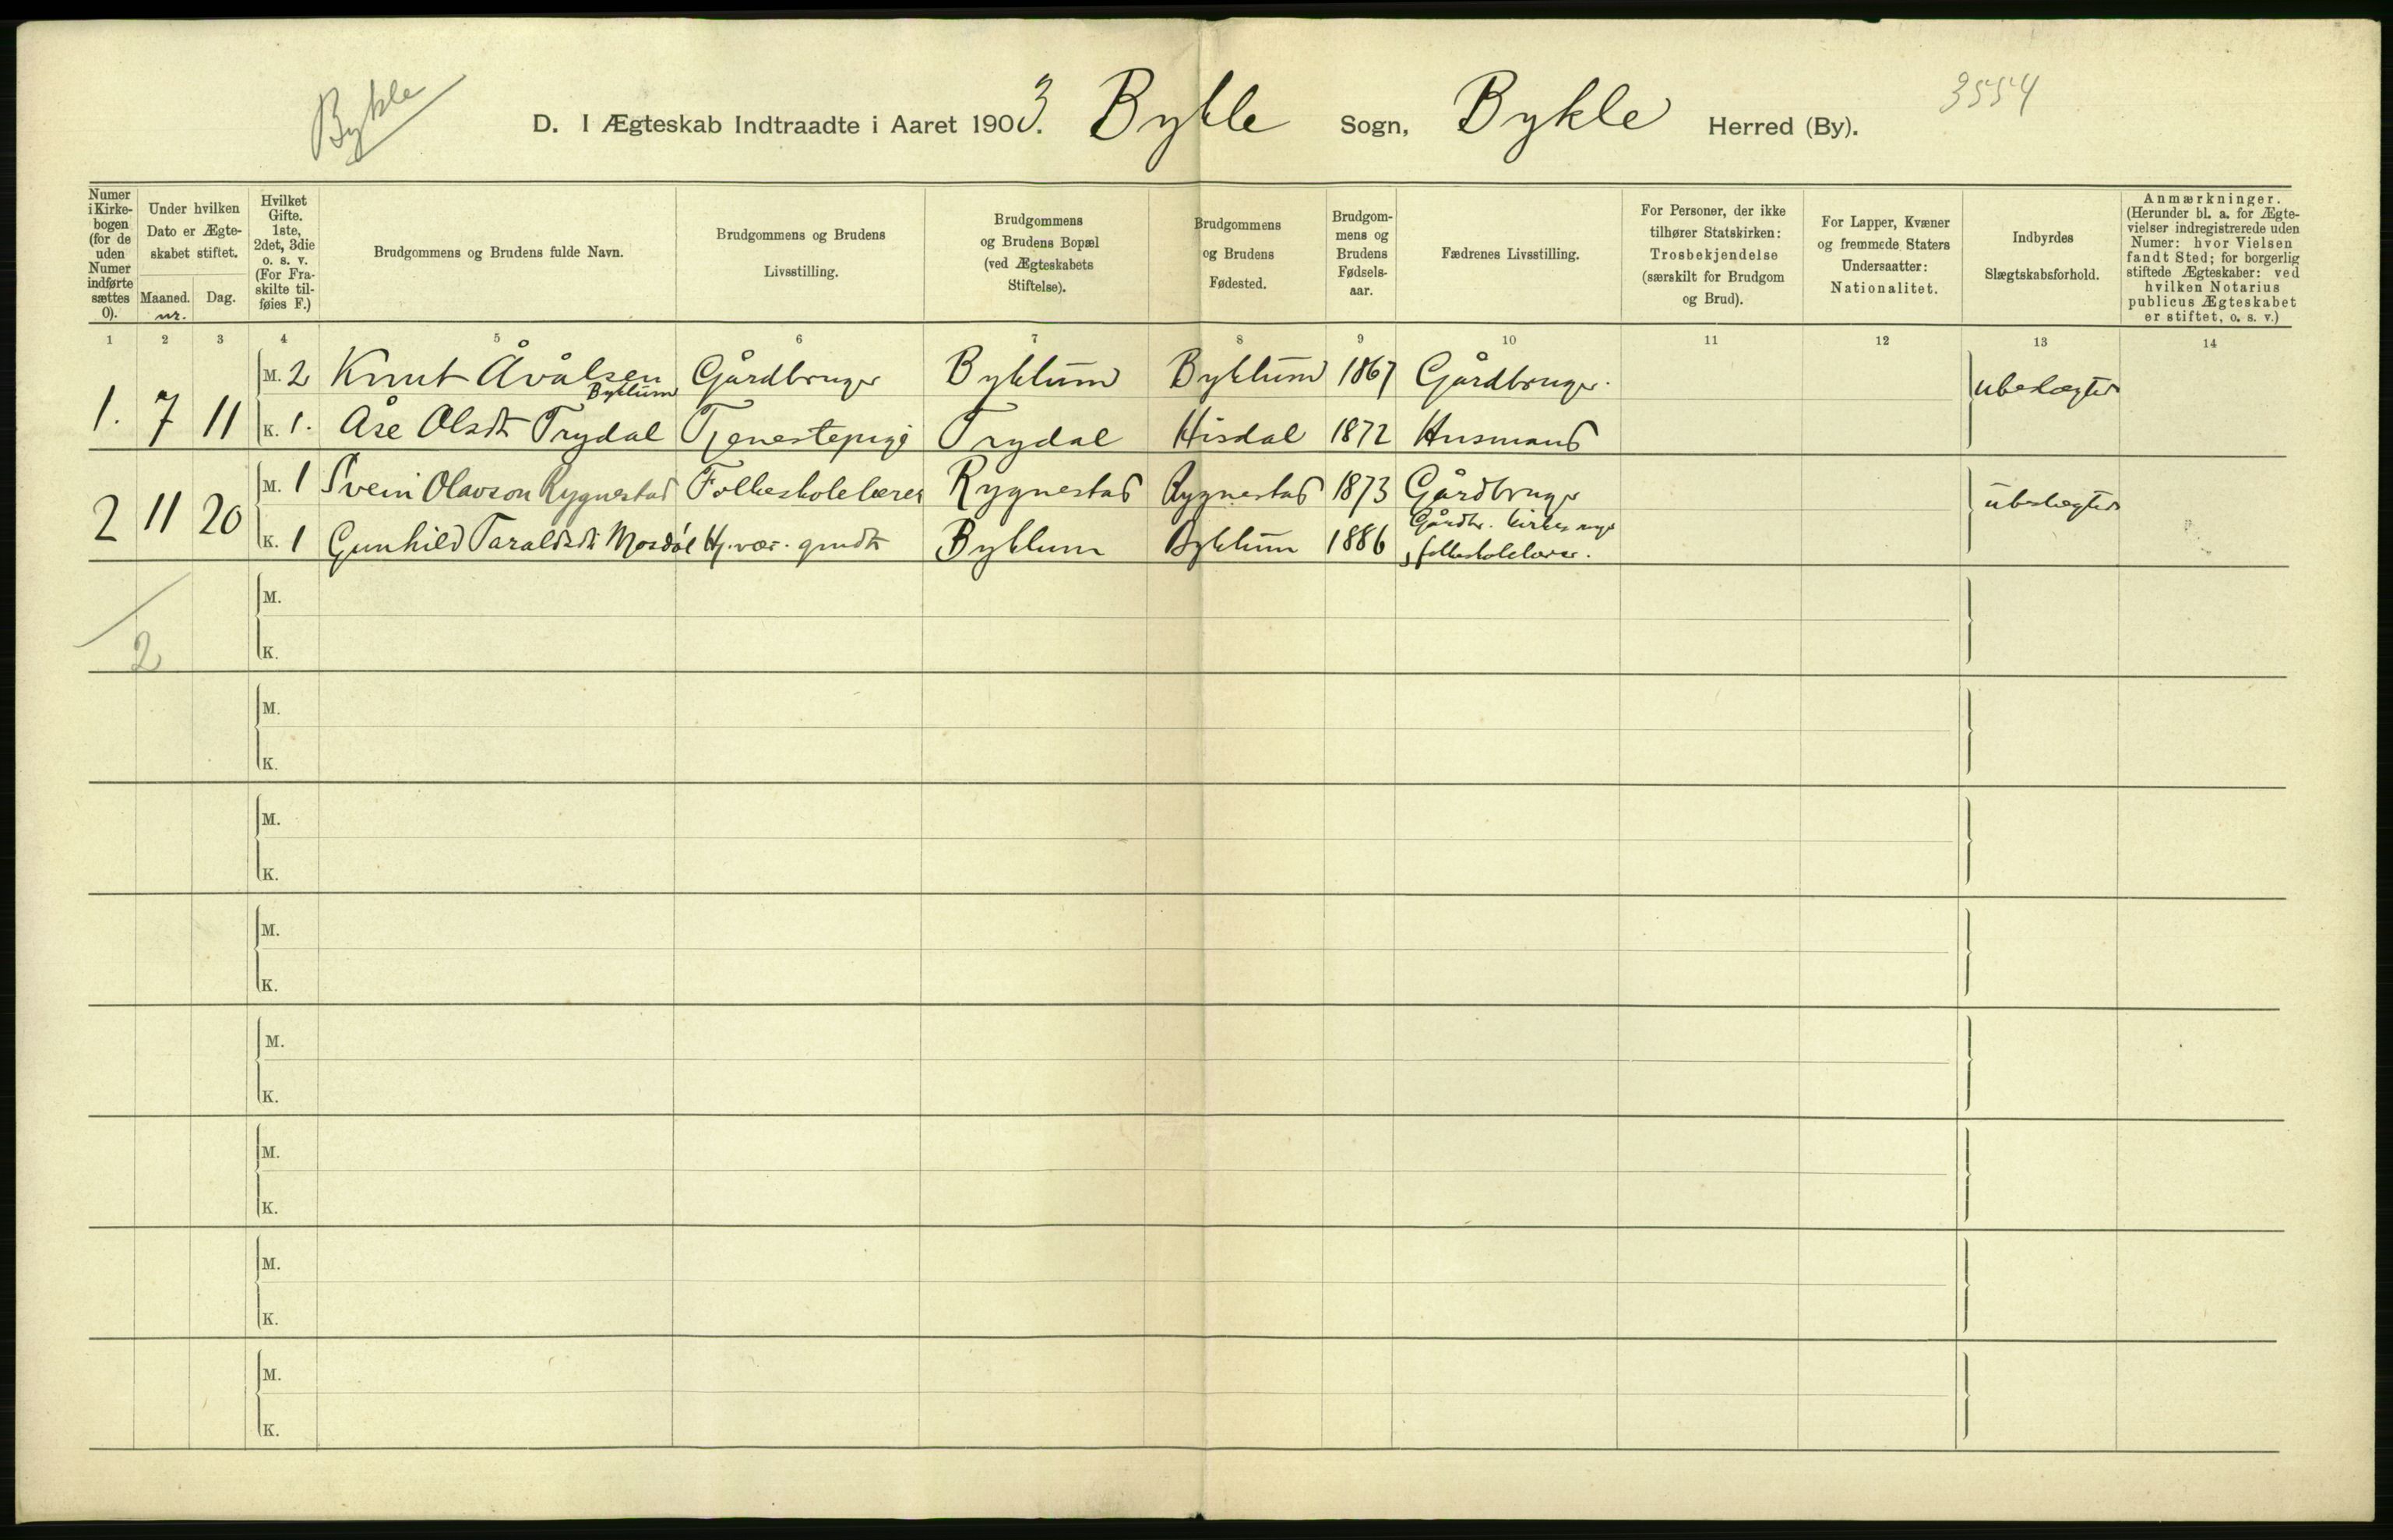 Bykle
3554
D. I Ægteskab Indtraadte i Aaret 1903. Bykle Sogn, Bykle Herred (By).
Numer i Kirkebogen (for de uden Numer indførte sættes 0).
Under hvilken Dato er Ægteskabet stiftet.
Maaned. nr.
Dag.
Hvilket Gifte. 1ste, 2det, 3die o. s. v. (For Fraskilte tilføies F.)
Brudgommens og Brudens fulde Navn.
Brudgommens og Brudens Livsstilling.
Brudgommens og Brudens Bopæl (ved Ægteskabets Stiftelse).
Brudgommens og Brudens Fødested.
Brudgommens og Brudens Fødselsaar.
Fædrenes Livsstilling.
For Personer, der ikke tilhører Statskirken: Trosbekjendelse (særskilt for Brudgom og Brud).
For Lapper, Kvæner og fremmede Staters Undersaatter: Nationalitet.
Indbyrdes Slægtskabsforhold.
Anmærkninger. (Herunder bl. a. for Ægtevielser indregistrerede uden Numer: hvor Vielsen fandt Sted; for borgerlig stiftede Ægteskaber: ved hvilken Notarius publicus Ægteskabet er stiftet, o. s. v.)
1 2 3 4 5 6 7 8 9 10 11 12 13 14
1. 7 11
M. 2 Knut Åvålsen Byklum Gårdbruger Byklum Byklum 1867 Gårdbruger. ubeslægted
K. 1. Åse Olsdt Trydal Tjenestepige Trydal Hisdal 1872 Husmand
2 11 20
M. 1 Svein Olavson Rygnestad Folkeskolelærer Rygnestad Rygnestad 1873 Gårdbruger ubeslægted
K. 1 Gunhild Taraldsdt Mosdøl Hj.vær. Byklum Byklum 1886 Gårdbr. kirkes
folkeskolelærer.
2
M.
K.
M.
K.
M.
K.
M.
K.
M.
K.
M.
K.
M.
K.
M.
K.